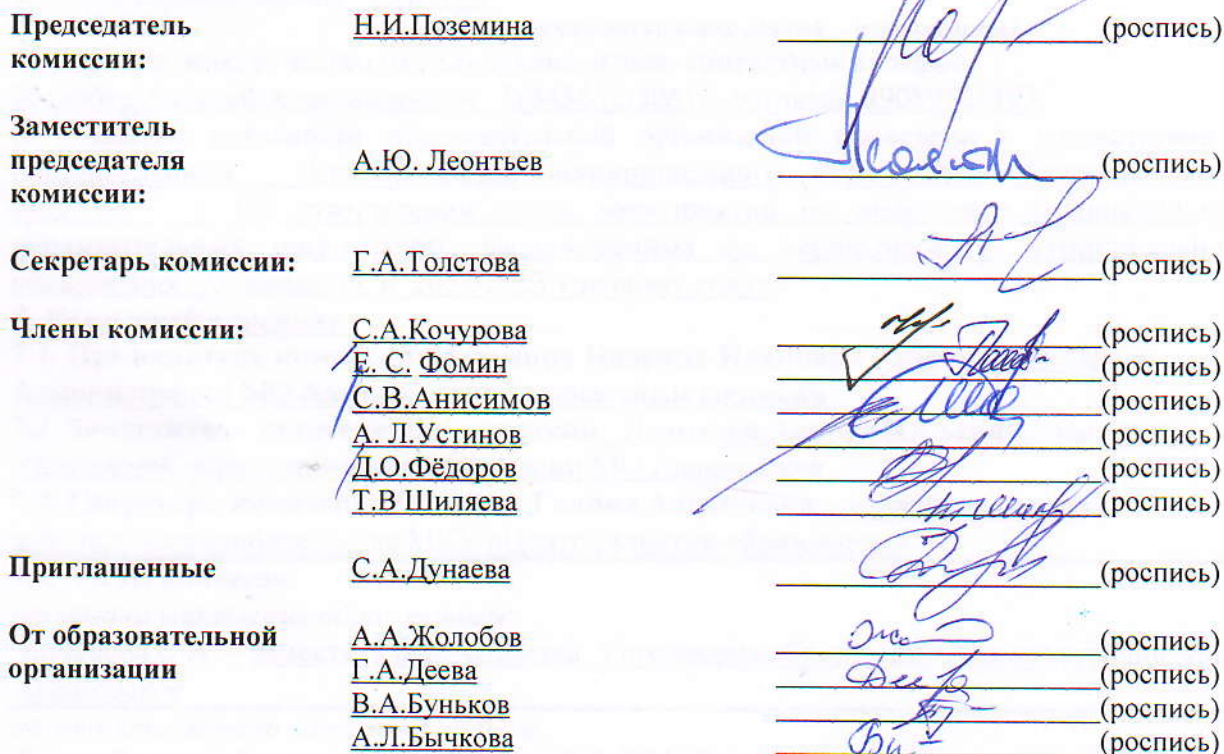 Председатель комиссии: Н.И.Поземина (роспись)
Заместитель председателя комиссии: А.Ю. Леонтьев (роспись)
Секретарь комиссии: Г.А.Толстова (роспись)
Члены комиссии: С.А.Кочурова (роспись)
Е. С. Фомин (роспись)
С.В.Анисимов (роспись)
А. Л.Устинов (роспись)
Д.О.Фёдоров (роспись)
Т.В Шиляева (роспись)
Приглашенные С.А.Дунаева (роспись)
От образовательной организации А.А.Жолобов (роспись)
Г.А.Деева (роспись)
В.А.Буньков (роспись)
А.Л.Бычкова (роспись)